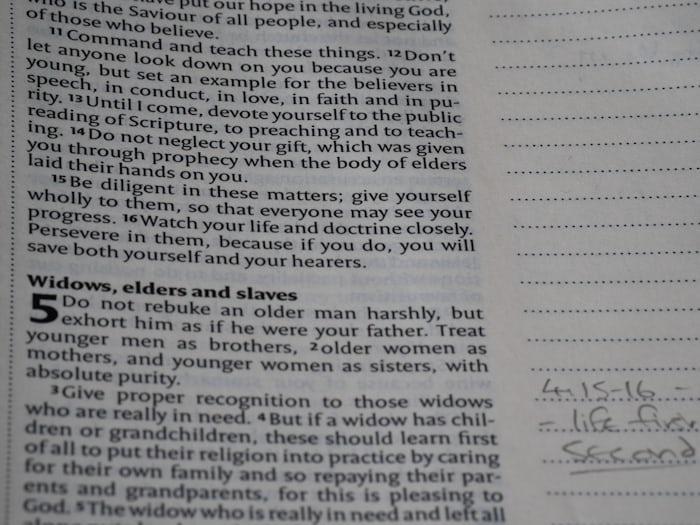 who is the Saviour of all people, and especially
of those who believe.
11 Command and teach these things. 12 Don't
let anyone look down on you because you are
young, but set an example for the believers in
speech, in conduct, in love, in faith and in pu-
rity. 13 Until I come, devote yourself to the public
reading of Scripture, to preaching and to teach-
ing. 14 Do not neglect your gift, which was given
you through prophecy when the body of elders
laid their hands on you.
15 Be diligent in these matters; give yourself
wholly to them, so that everyone may see your
progress. 16 Watch your life and doctrine closely.
Persevere in them, because if you do, you will
save both yourself and your hearers.
Widows, elders and slaves
5 Do not rebuke an older man harshly, but
exhort him as if he were your father. Treat
younger men as brothers, 2 older women as
mothers, and younger women as sisters, with
absolute purity.
3 Give proper recognition to those widows
who are really in need. 4 But if a widow has chil-
dren or grandchildren, these should learn first
of all to put their religion into practice by caring
for their own family and so repaying their par-
ents and grandparents, for this is pleasing to
God. 5 The widow who is really in need and left all
4:15-16 -
- life first
second